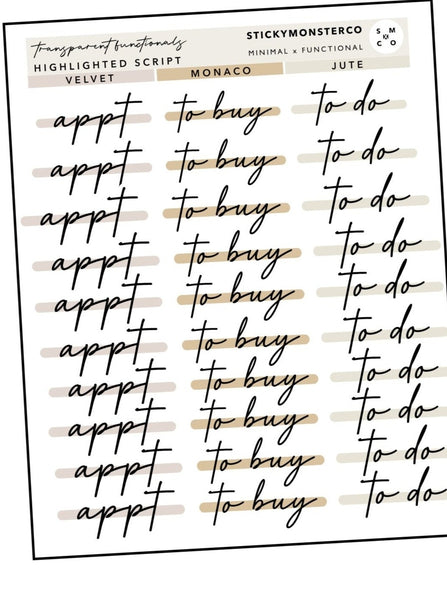 transparent functionals
STICKYMONSTERCO
HIGHLIGHTED SCRIPT
MINIMAL x FUNCTIONAL
S M
x
C O
VELVET MONACO JUTE
appt to buy to do
appt to buy to do
appt to buy to do
appt to buy to do
appt to buy to do
appt to buy to do
appt to buy to do
appt to buy to do
appt to buy to do
appt to buy to do